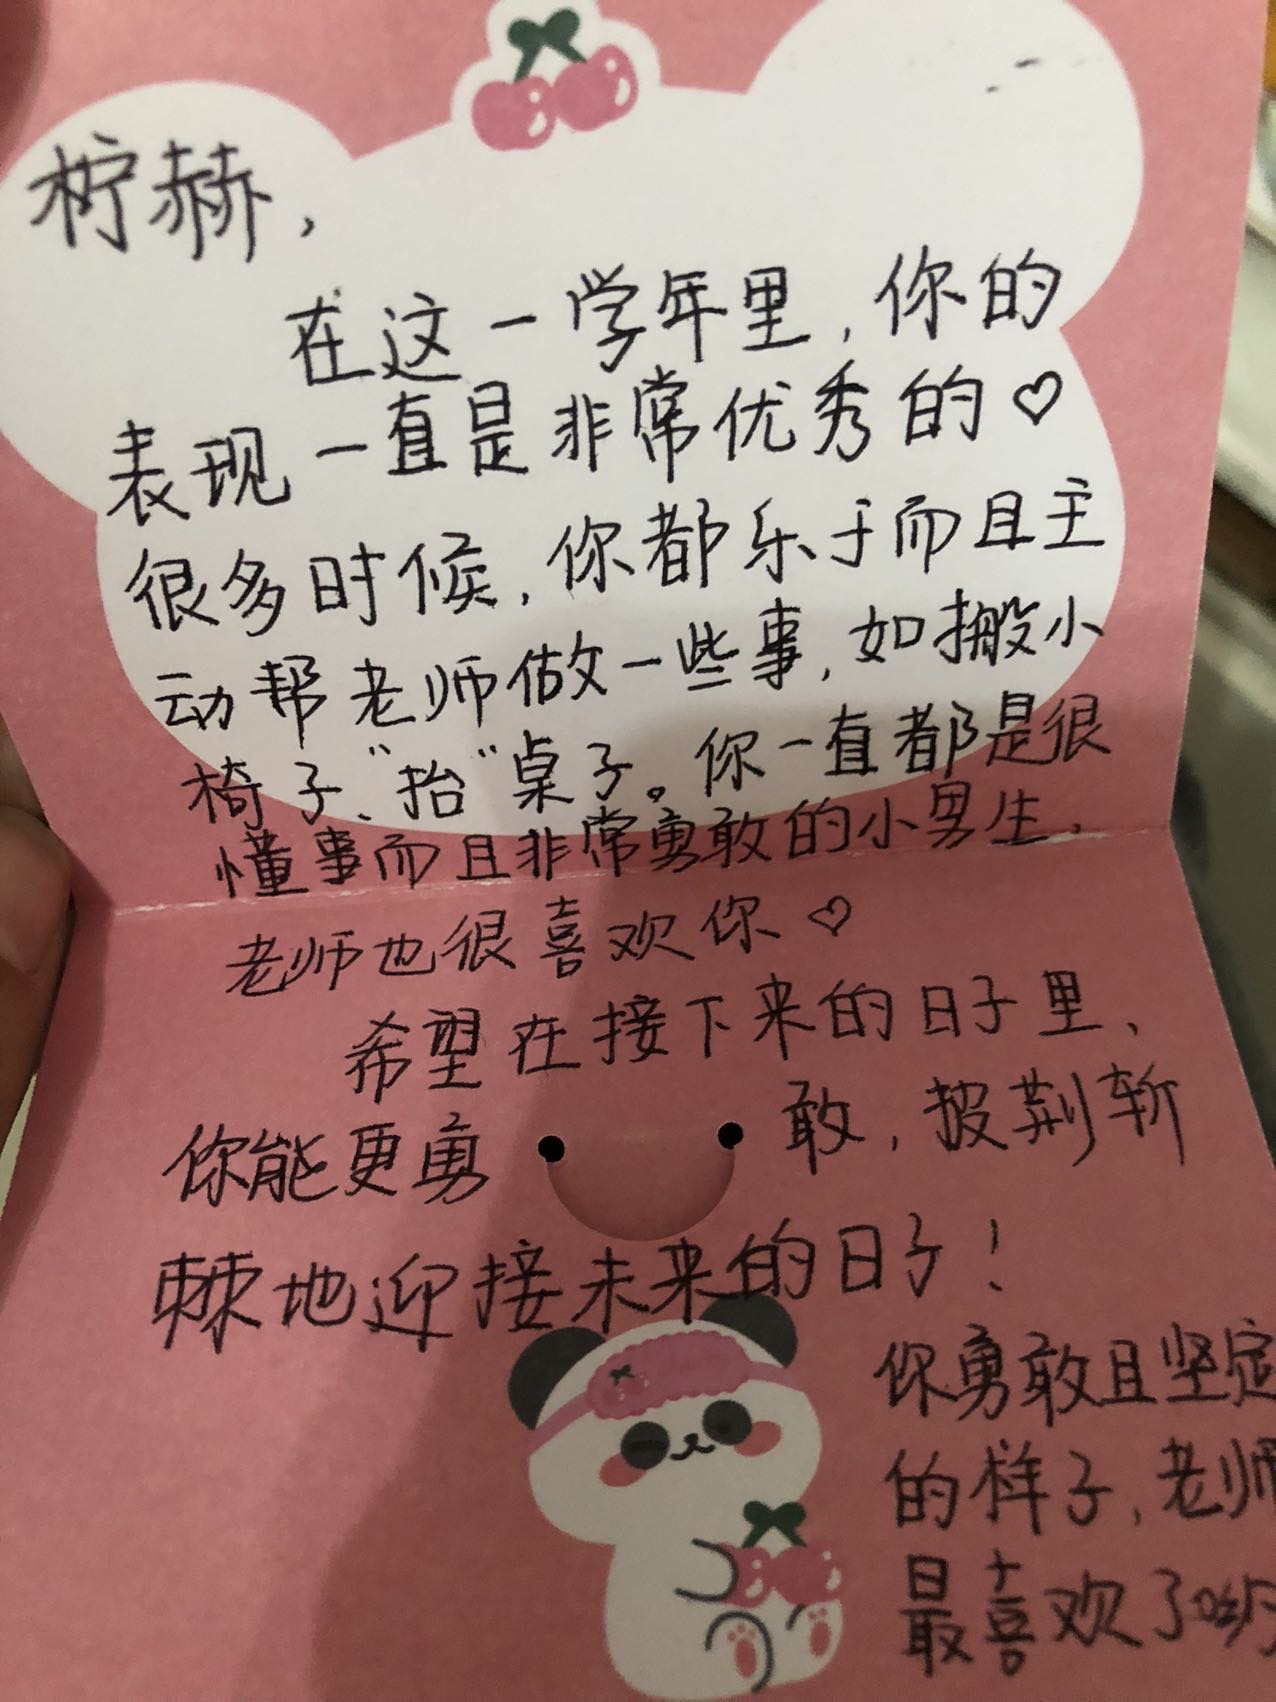 柠赫，
在这一学年里，你的
表现一直是非常优秀的♡
很多时候，你都乐于而且主
动帮老师做一些事，如搬小
椅子、“抬”桌子。你一直都是很
懂事而且非常勇敢的小男生，
老师也很喜欢你♡
希望在接下来的日子里、
你能更勇敢，披荆斩
棘地迎接未来的日子！
你勇敢且坚定
的样子，老师
最喜欢了哟